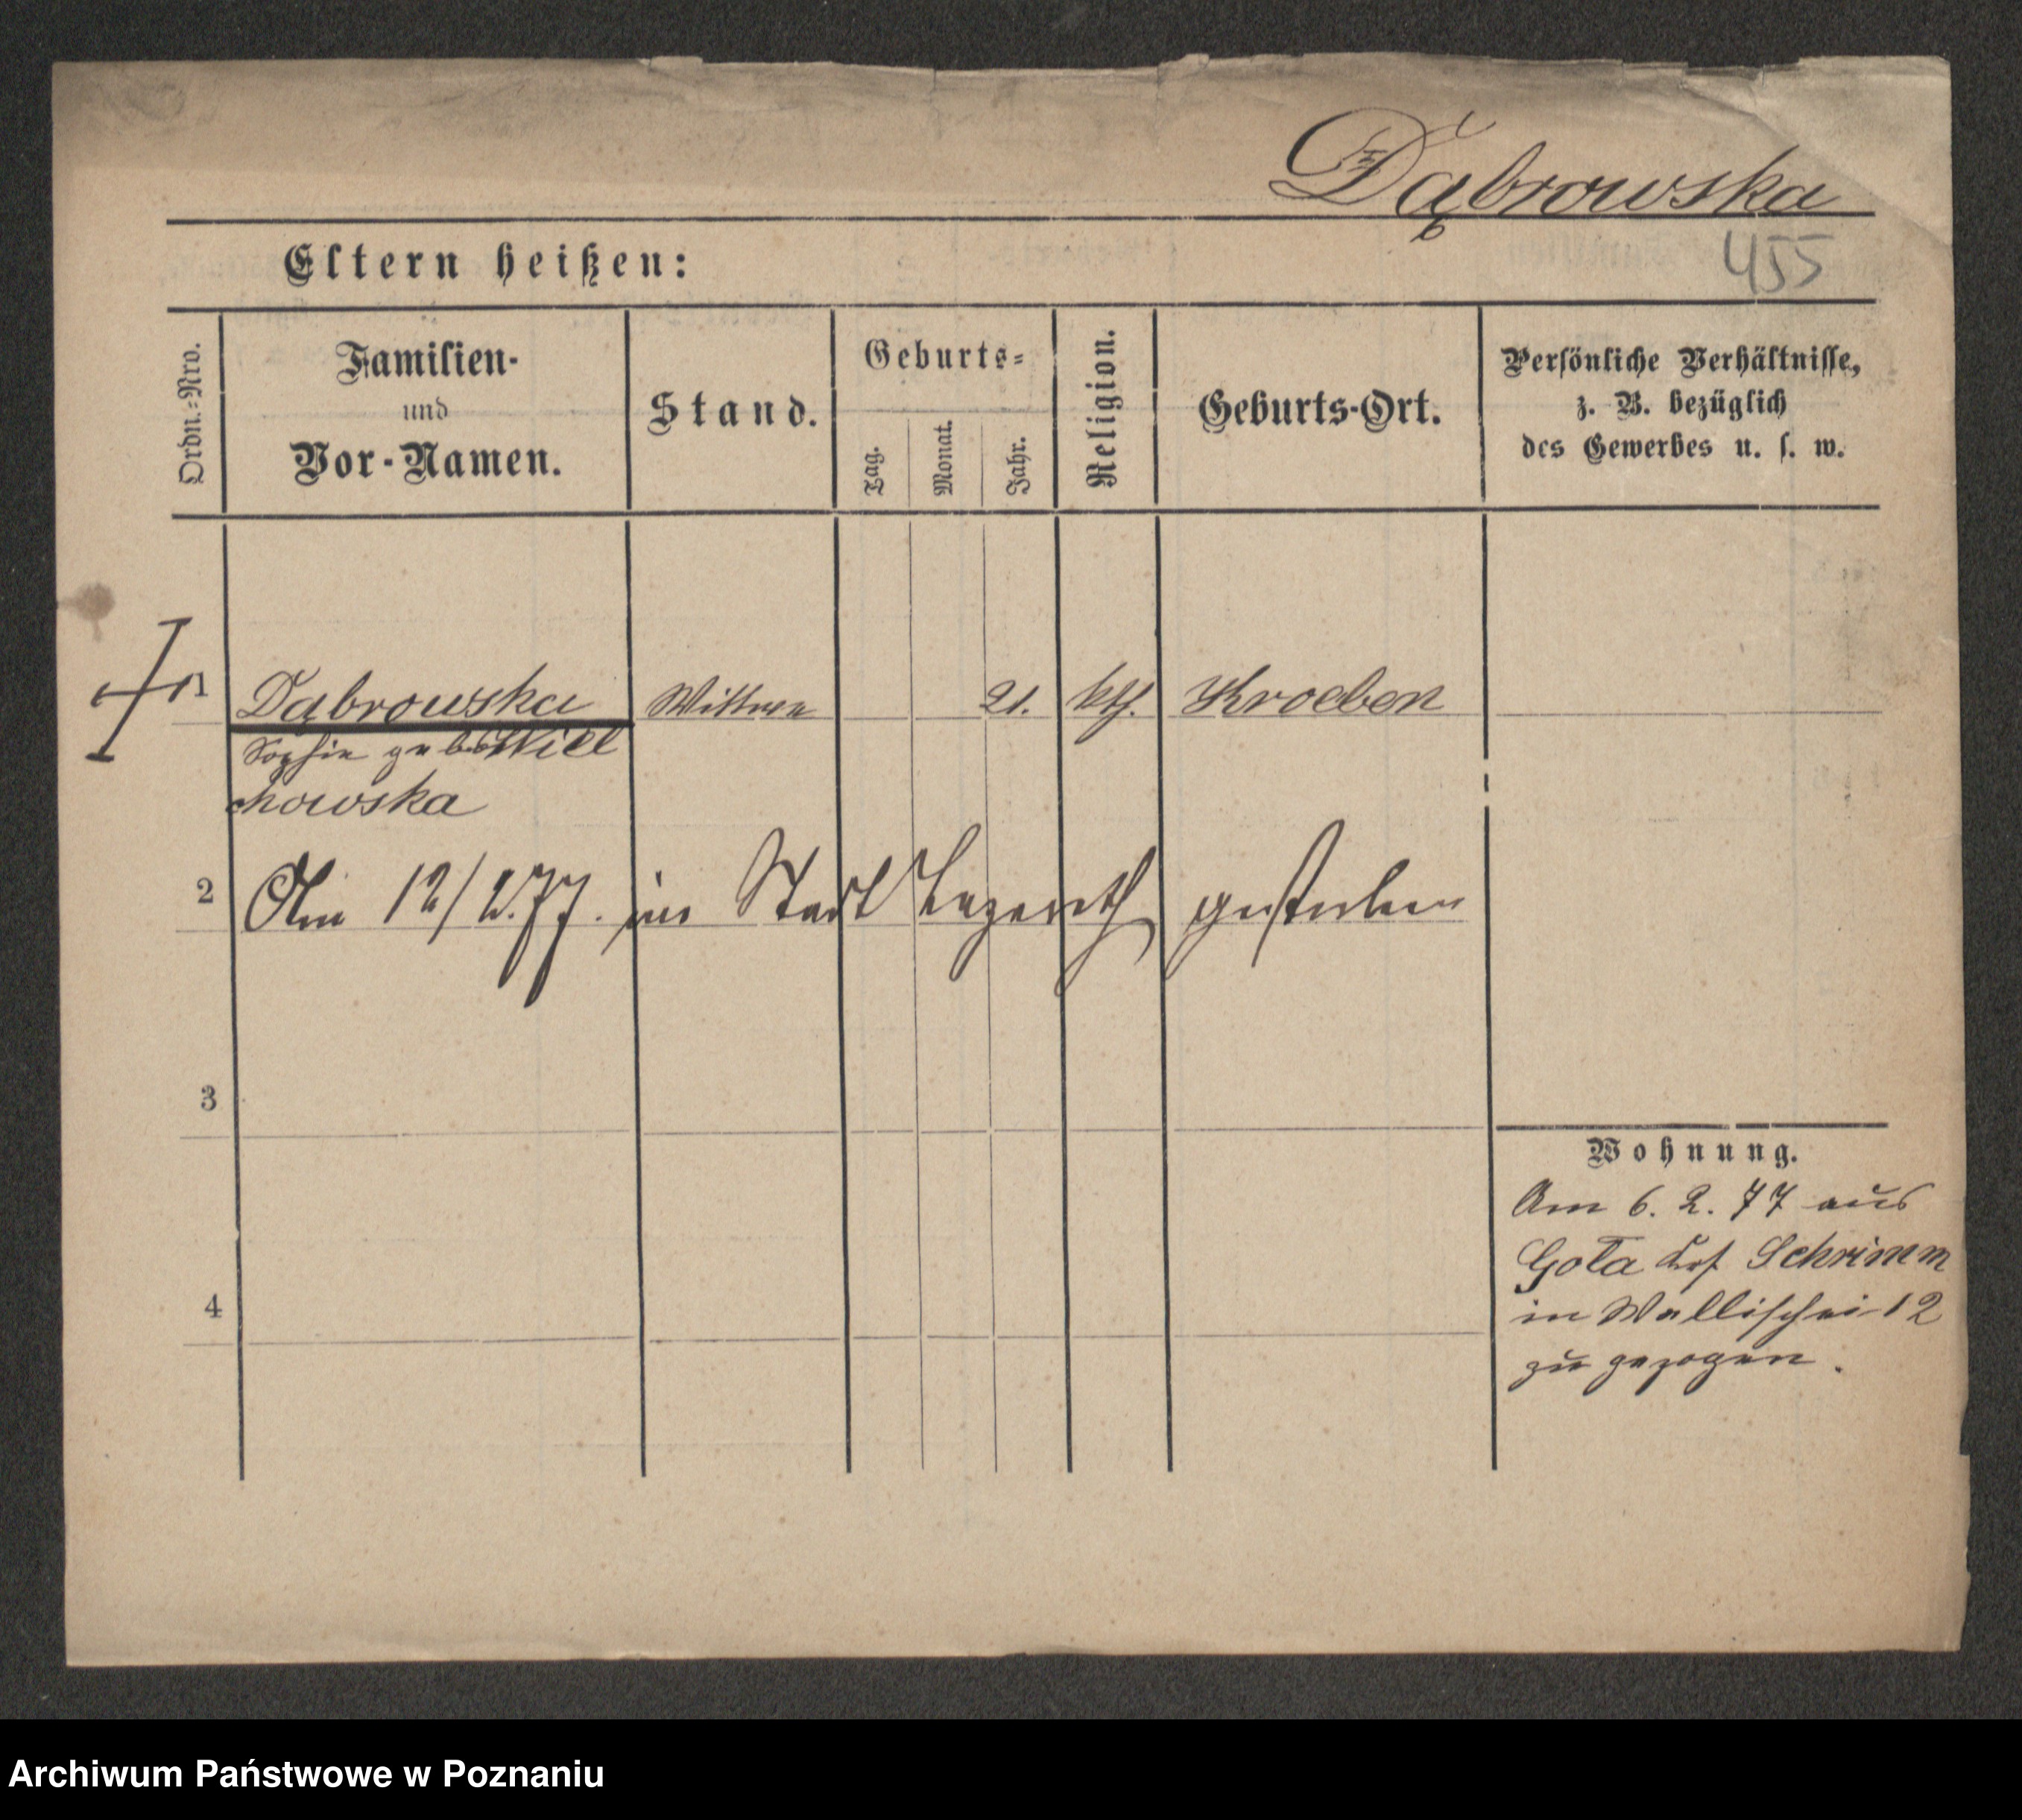 Dąbrowska
455
Eltern heißen:
Ordn.-Nro.
Familien-
und
Vor-Namen.
Stand.
Geburts-
Tag.
Monat.
Jahr.
Religion.
Geburts-Ort.
Persönliche Verhältnisse,
z. B. bezüglich
des Gewerbes u. s. w.
1 Dąbrowska Wittwe 21. kth. Kroeben
Sophie geb. Wiel
chowska
2 Am 12/2.77. im Stadt Lazareth gestorben
3
4
Wohnung.
Am 6. 2. 77 aus
Gola Krs. Schrimm
in Wallischei 12
zu gezogen.
Archiwum Państwowe w Poznaniu